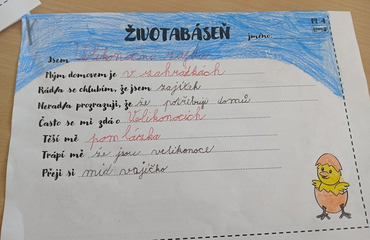 ŽIVOTABÁSEŇ jméno:
Jsem Velikonoční
Mým domovem je v zahrádkách
Rád/a se chlubím, že jsem zajíček
Nerad/a prozrazuji, že že potřebuji domů
Často se mi zdá o Velikonocích
Těší mě pomlázka
Trápí mě že jsou velikonoce
Přeji si mít vajíčko